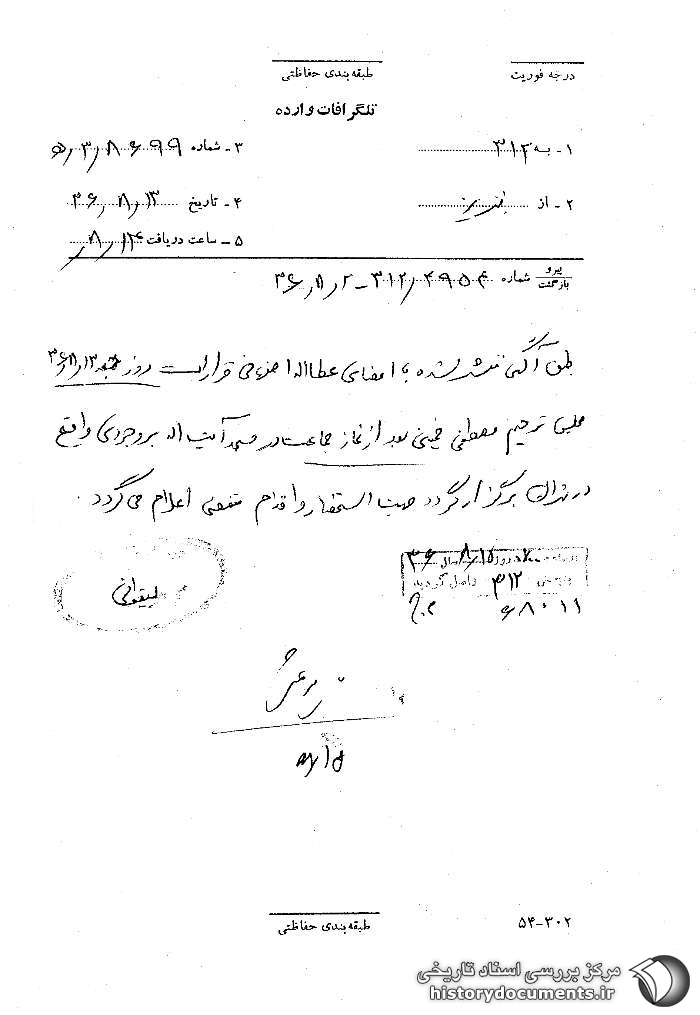 درجه فوریت
طبقه‌بندی حفاظتی
تلگرافات وارده
۱- به ۳۱۲
۳- شماره ۵/۳/۸۶۹۹
۲- از
۴- تاریخ ۳۶/۸/۱۳
۵- ساعت دریافت ۸/۱۴
پیرو
بازگشت شماره ۳۱۲/۴۹۵۴ - ۳۶/۸/۲
طبق آگهی منتشر شده با امضای عطااله قرار است روز ۳۶/۸/۱۳
مجلس ترحیم مصطفی خمینی بعد از نماز جماعت در مسجد آیت اله بروجردی واقع
در برگزار گردد جهت استحضار و اقدام مقتضی اعلام می گردد .
۷۰۰ روز ۸/۱۵ سال ۳۶
بخش ۳۱۲ واصل گردید
۶۸۰۱۱
لیقوانی
۸/۱۵
طبقه‌بندی حفاظتی
۵۴-۳۰۲
مرکز بررسی اسناد تاریخی
historydocuments.ir